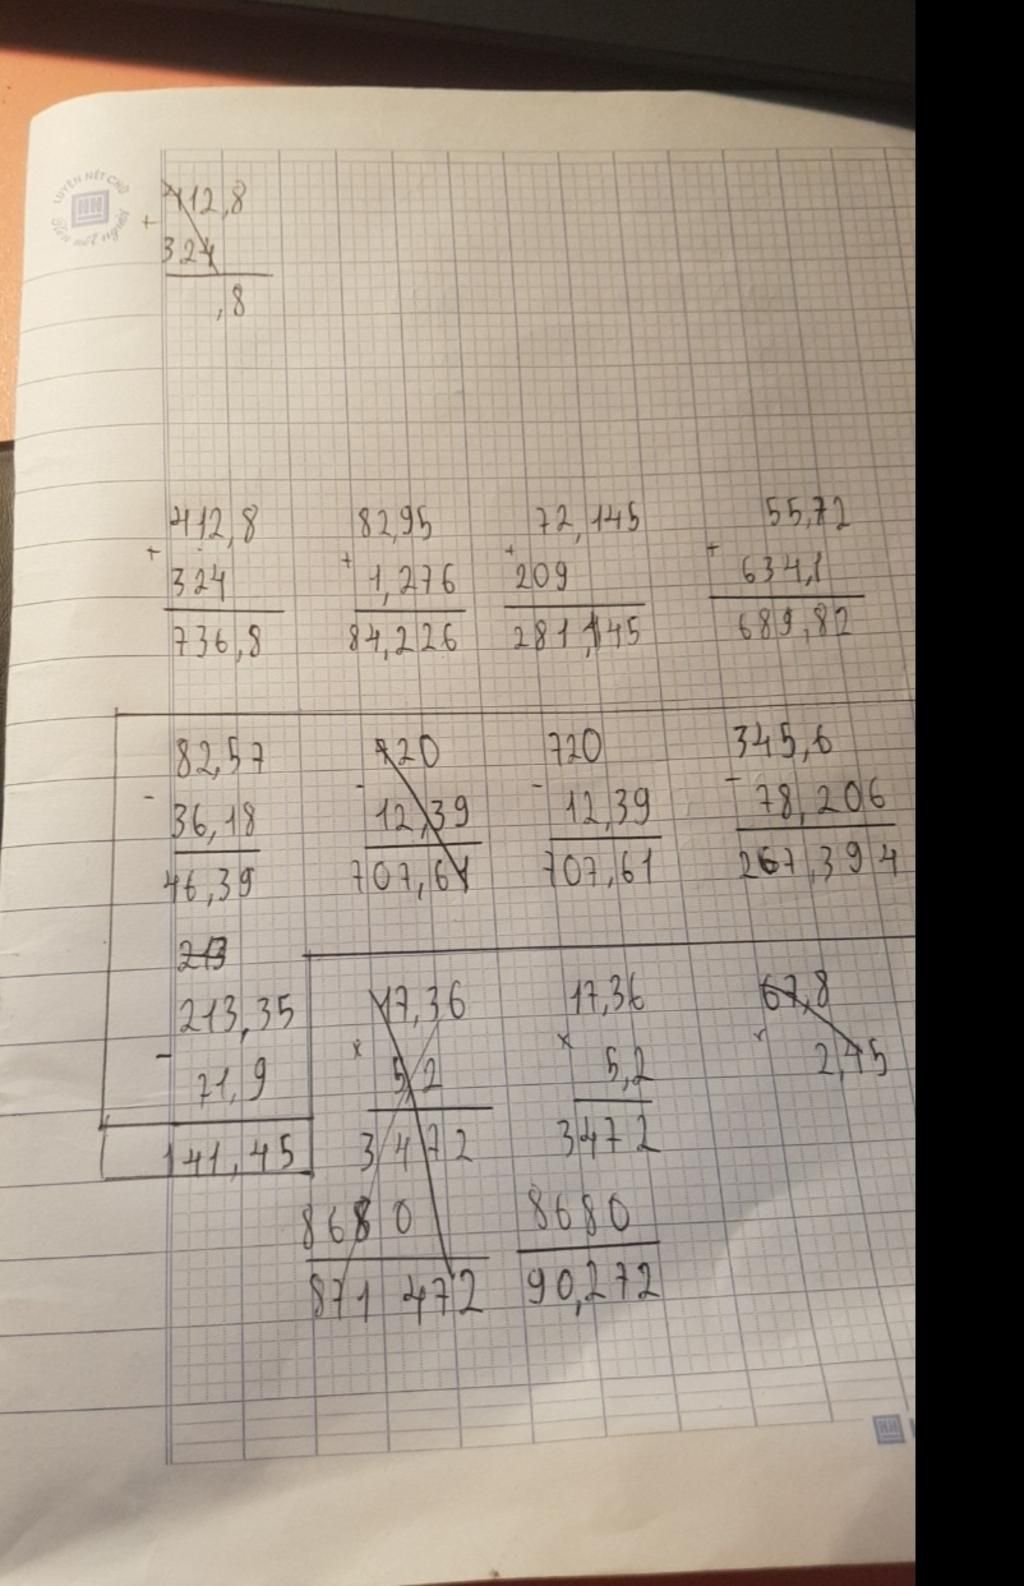 LUYỆN NÉT CHỮ
HH
Rèn nết người
412,8
+
324
,8
412,8 82,95 72,145 55,72
+ + + +
324 1,276 209 634,1
736,8 84,226 281,145 689,82
82,57 720 720 345,6
- - - -
36,18 12,39 12,39 78,206
46,39 707,61 707,61 267,394
213
213,35 17,36 17,36 67,8
- x x x
71,9 5,2 5,2 2,45
141,45 3472 3472
8680 8680
871 472 90,272
HH